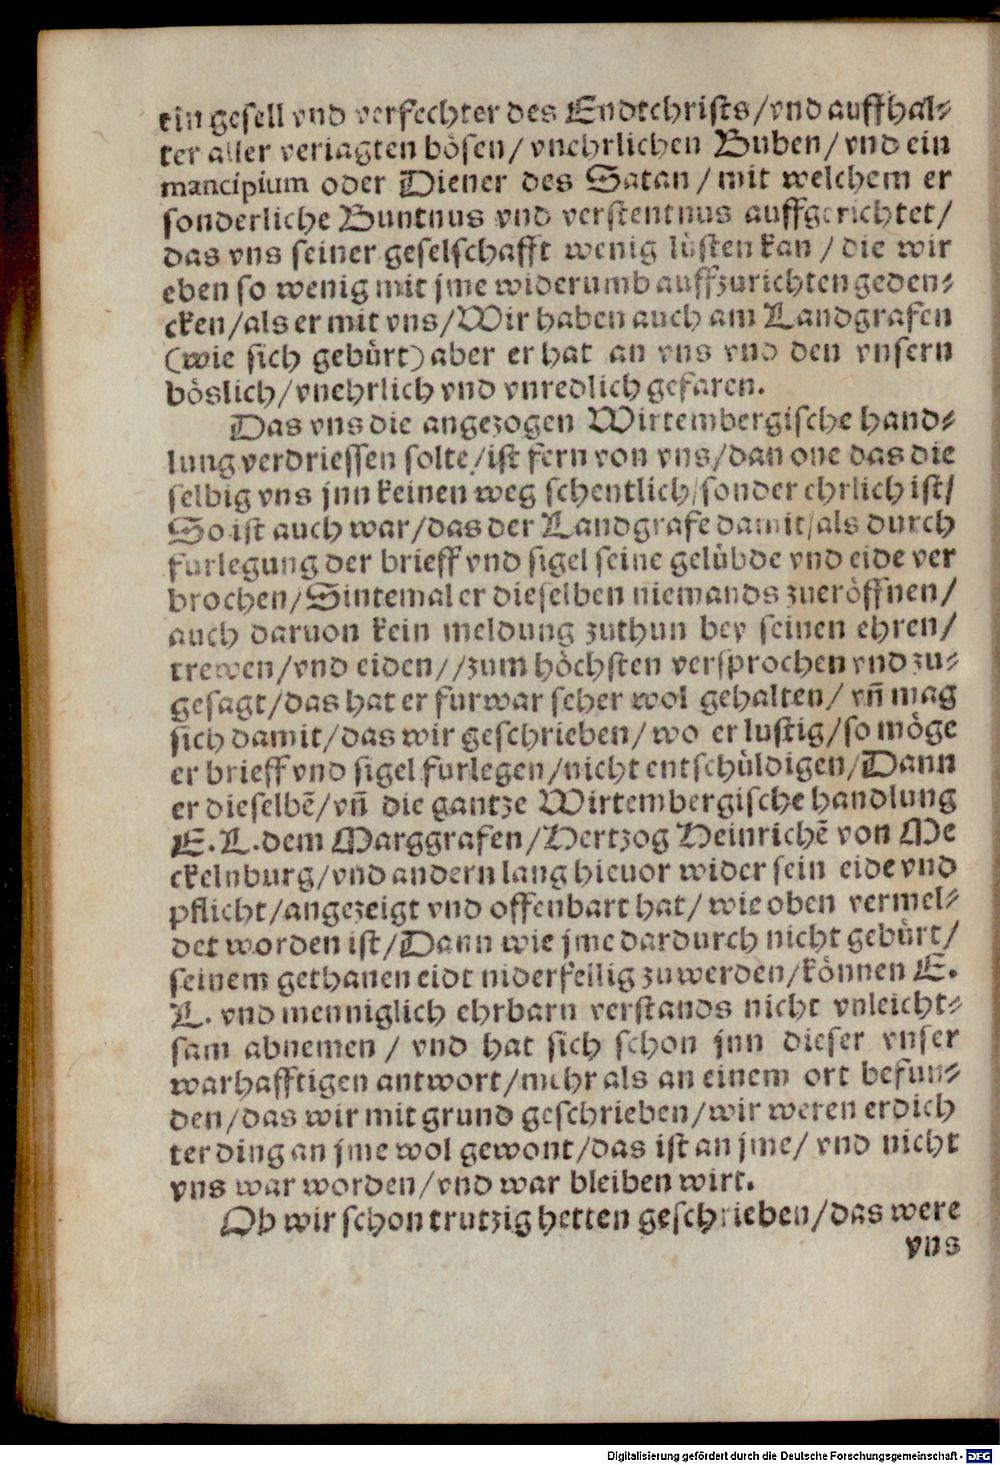 ein gesell vnd verfechter des Endtchrists/vnd auffhal-
ter aller veriagten bösen/ vnehrlichen Buben/ vnd ein
mancipium oder Diener des Satan/ mit welchem er
sonderliche Buntnus vnd verstentnus auffgerichtet/
das vns seiner geselschafft wenig lüsten kan / die wir
eben so wenig mit jme widerumb auffzurichten geden-
cken/als er mit vns/Wir haben auch am Landgrafen
(wie sich gebürt) aber er hat an vns vnd den vnsern
böslich/vnehrlich vnd vnredlich gefaren.
Das vns die angezogen Wirtembergische hand-
lung verdriessen solte/ist fern von vns/dan one das die
selbig vns jnn keinen weg schentlich/sonder ehrlich ist/
So ist auch war/das der Landgrafe damit/als durch
furlegung der brieff vnd sigel seine gelübde vnd eide ver
brochen/Sintemal er dieselben niemands zueröffnen/
auch daruon kein meldung zuthun bey seinen ehren/
trewen/vnd eiden//zum höchsten versprochen vnd zu-
gesagt/das hat er furwar seher wol gehalten/ vñ mag
sich damit/das wir geschrieben/wo er lustig/so möge
er brieff vnd sigel furlegen/nicht entschüldigen/Dann
er dieselbẽ/vñ die gantze Wirtembergische handlung
E.L.dem Marggrafen/Hertzog Heinrichẽ von Me
ckelnburg/vnd andern lang hieuor wider sein eide vnd
pflicht/angezeigt vnd offenbart hat/ wie oben vermel-
det worden ist/Dann wie jme dardurch nicht gebürt/
seinem gethanen eidt niderfellig zuwerden/können E.
L. vnd menniglich ehrbarn verstands nicht vnleicht-
sam abnemen / vnd hat sich schon jnn dieser vnser
warhafftigen antwort/mehr als an einem ort befun-
den/das wir mit grund geschrieben/wir weren erdich
ter ding an jme wol gewont/das ist an jme/ vnd nicht
vns war worden/vnd war bleiben wirt.
Ob wir schon trutzig hetten geschrieben/das were
vns
Digitalisierung gefördert durch die Deutsche Forschungsgemeinschaft - DFG